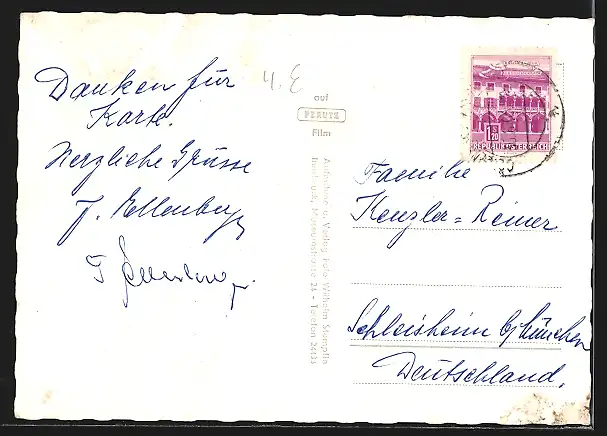 Danken für
Karte.
Herzliche Grüsse
J. Ellenberg
4. E
auf
PERUTZ
Film
Aufnahme u. Verlag Foto Wilhelm Stempfle
Innsbruck, Museumstrasse 24 - Telefon 24435
1 S 20
REPUBLIK ÖSTERREICH
Familie
Kenzler=Reiner
Schleisheim b/München
Deutschland.